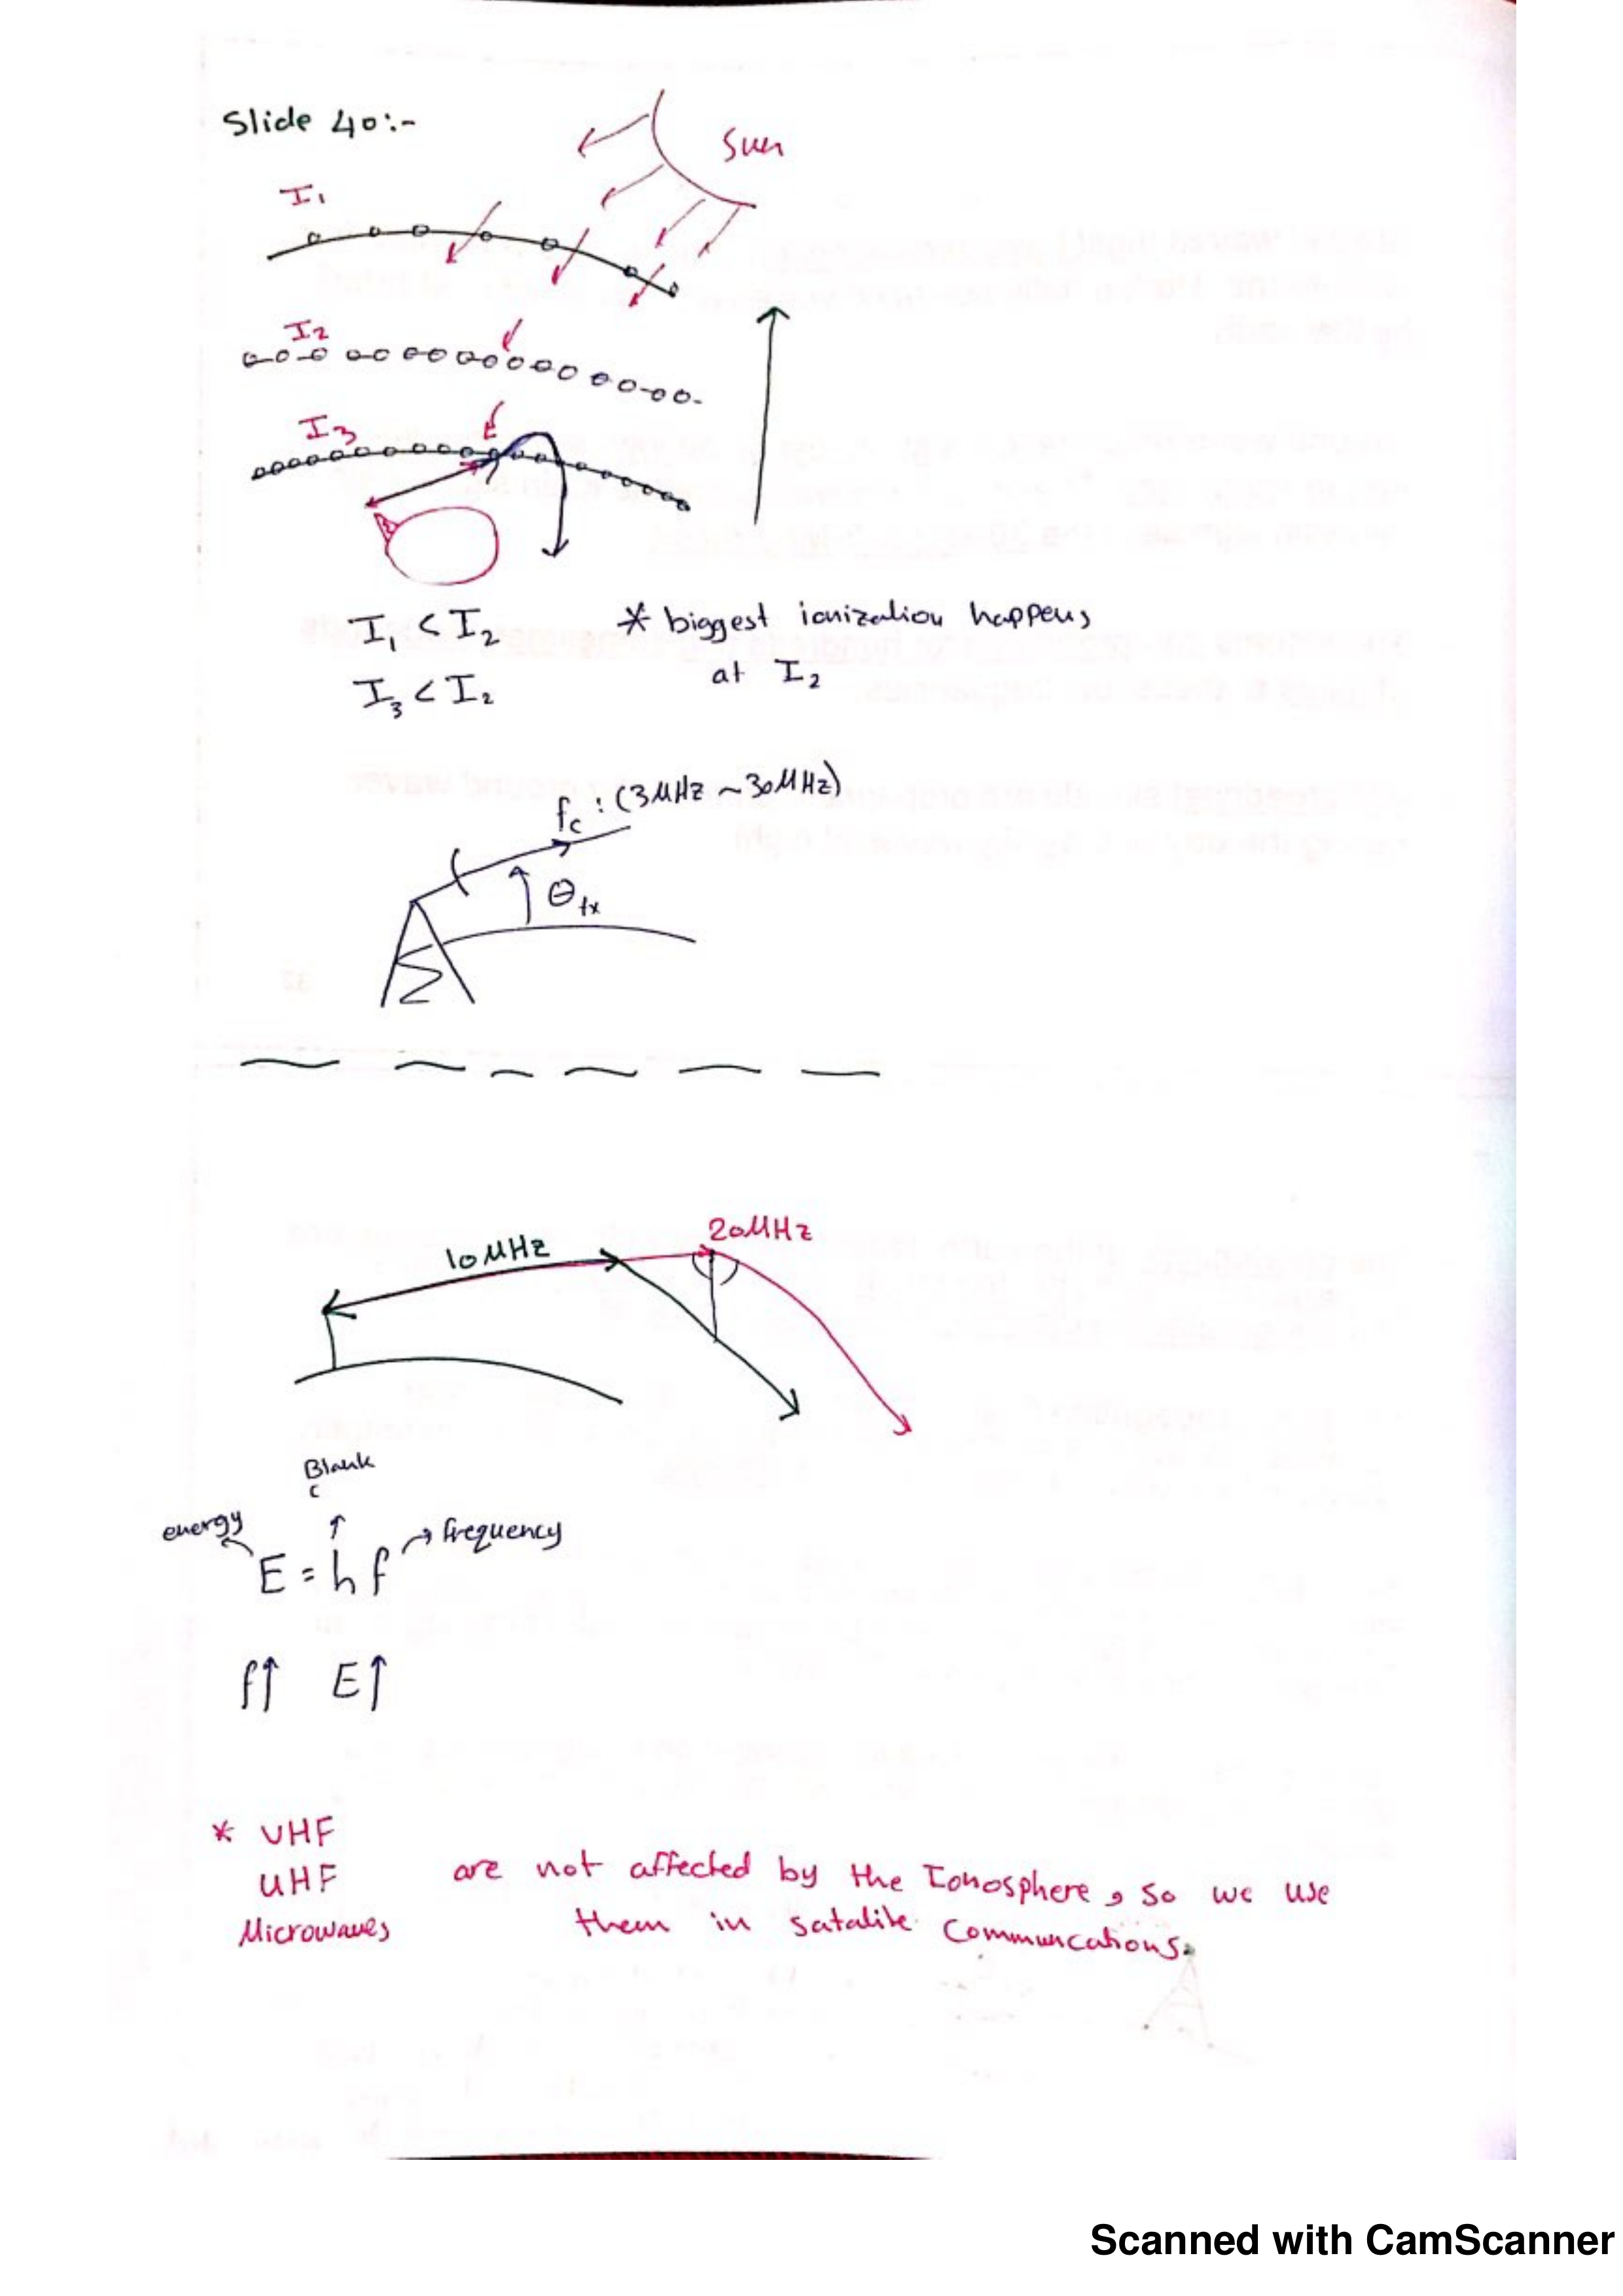 Slide 40:-
Sun
I₁
I₂
I₃
I₁ < I₂
I₃ < I₂
* biggest ionization happens
at I₂
fc : (3MHz ~ 30MHz)
θtx
10MHz
20MHz
Blank
c
energy
frequency
E = h f
f↑ E↑
* VHF
UHF
Microwaves
are not affected by the Ionosphere, so we use
them in satalite communcations.
Scanned with CamScanner